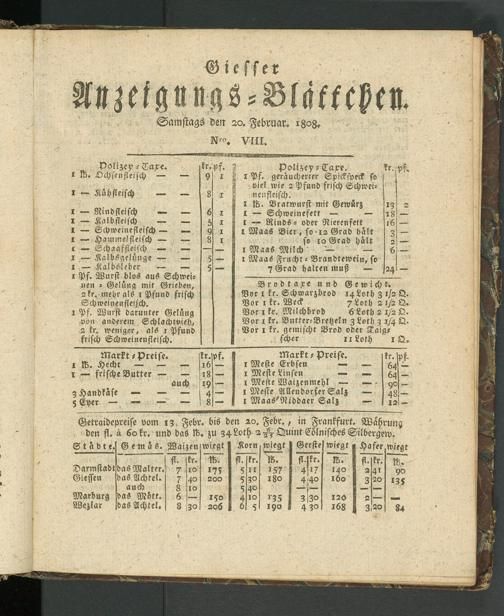 Giesser
Anzeigungs-Blättchen.
Samstags den 20. Februar. 1808.
Nro. VIII.
Polizey-Taxe. kr. pf.
1 ℔. Ochsenfleisch — — 9 1
1 — Kühfleisch — — 8 1
1 — Rindfleisch — — 6 1
1 — Kalbfleisch — — 5 1
1 — Schweinefleisch — — 9 1
1 — Hammelfleisch — — 8 1
1 — Schaaffleisch — —
1 — Kalbsgelünge — — 5 —
1 — Kalbsleber — — 5 —
1 Pf. Wurst blos aus Schwei-
nen-Gelüng mit Grieben,
2 kr. mehr als 1 Pfund frisch
Schweinenfleisch.
1 Pf. Wurst darunter Gelüng
von anderem Schlachtvieh,
2 kr. weniger, als 1 Pfund
frisch Schweinenfleisch.
Polizey-Taxe. kr. pf.
1 Pf. geräucherter Spick speck so
viel wie 2 Pfund frisch Schwei-
nenfleisch.
1 ℔. Bratwurst mit Gewürz 13 2
1 — Schweinefett — — 18 —
1 — Rinds- oder Nierenfett 16 —
1 Maas Bier, so 12 Grad hält 3 —
so 10 Grad hält 2 —
1 Maas Milch — — 6 —
1 Maas Frucht-Brandewein, so
7 Grad halten muß — 24 —
Brodtaxe und Gewicht.
Vor 1 kr. Schwarzbrod 14 Loth 3 1/2 Q.
Vor 1 kr. Weck 7 Loth 2 1/2 Q.
Vor 1 kr. Milchbrod 6 Loth 2 1/2 Q.
Vor 1 kr. Butter-Bretzeln 3 Loth 3 1/4 Q.
Vor 1 kr. gemischt Brod oder Taig-
scher 11 Loth 1 Q.
Markt-Preise. kr. pf.
1 ℔. Hecht — — 16 —
1 — frische Butter — — 18 —
auch 19 —
3 Handkäse — — — 4 —
5 Eyer — — — 8 —
Markt-Preise. kr. pf.
1 Meste Erbsen — — 64 —
1 Meste Linsen — — 64 —
1 Meste Waizenmehl — — 90 —
1 Meste Allendorfer Salz — 48 —
1 Maas Niddaer Salz — 12 —
Getraidepreise vom 13. Febr. bis den 20. Febr., in Frankfurt. Währung
den fl. à 60 kr. und das ℔. zu 34 Loth 2 Quint Cölnisches Silbergew.
Städte. Gemäs. Waizen wiegt Korn wiegt Gerste wiegt Hafer wiegt
fl. kr. ℔. fl. kr. ℔. fl. kr. ℔. fl. kr. ℔.
Darmstadt das Malter. 7 10 175 5 11 157 4 17 140 2 41 90
Giessen das Achtel. 7 40 200 5 30 180 4 40 160 3 20 135
auch 8 10 5 40 — —
Marburg das Mött. 6 — 150 4 10 135 3 30 120 — —
Wezlar das Achtel. 8 30 206 6 5 190 4 30 168 3 20 84